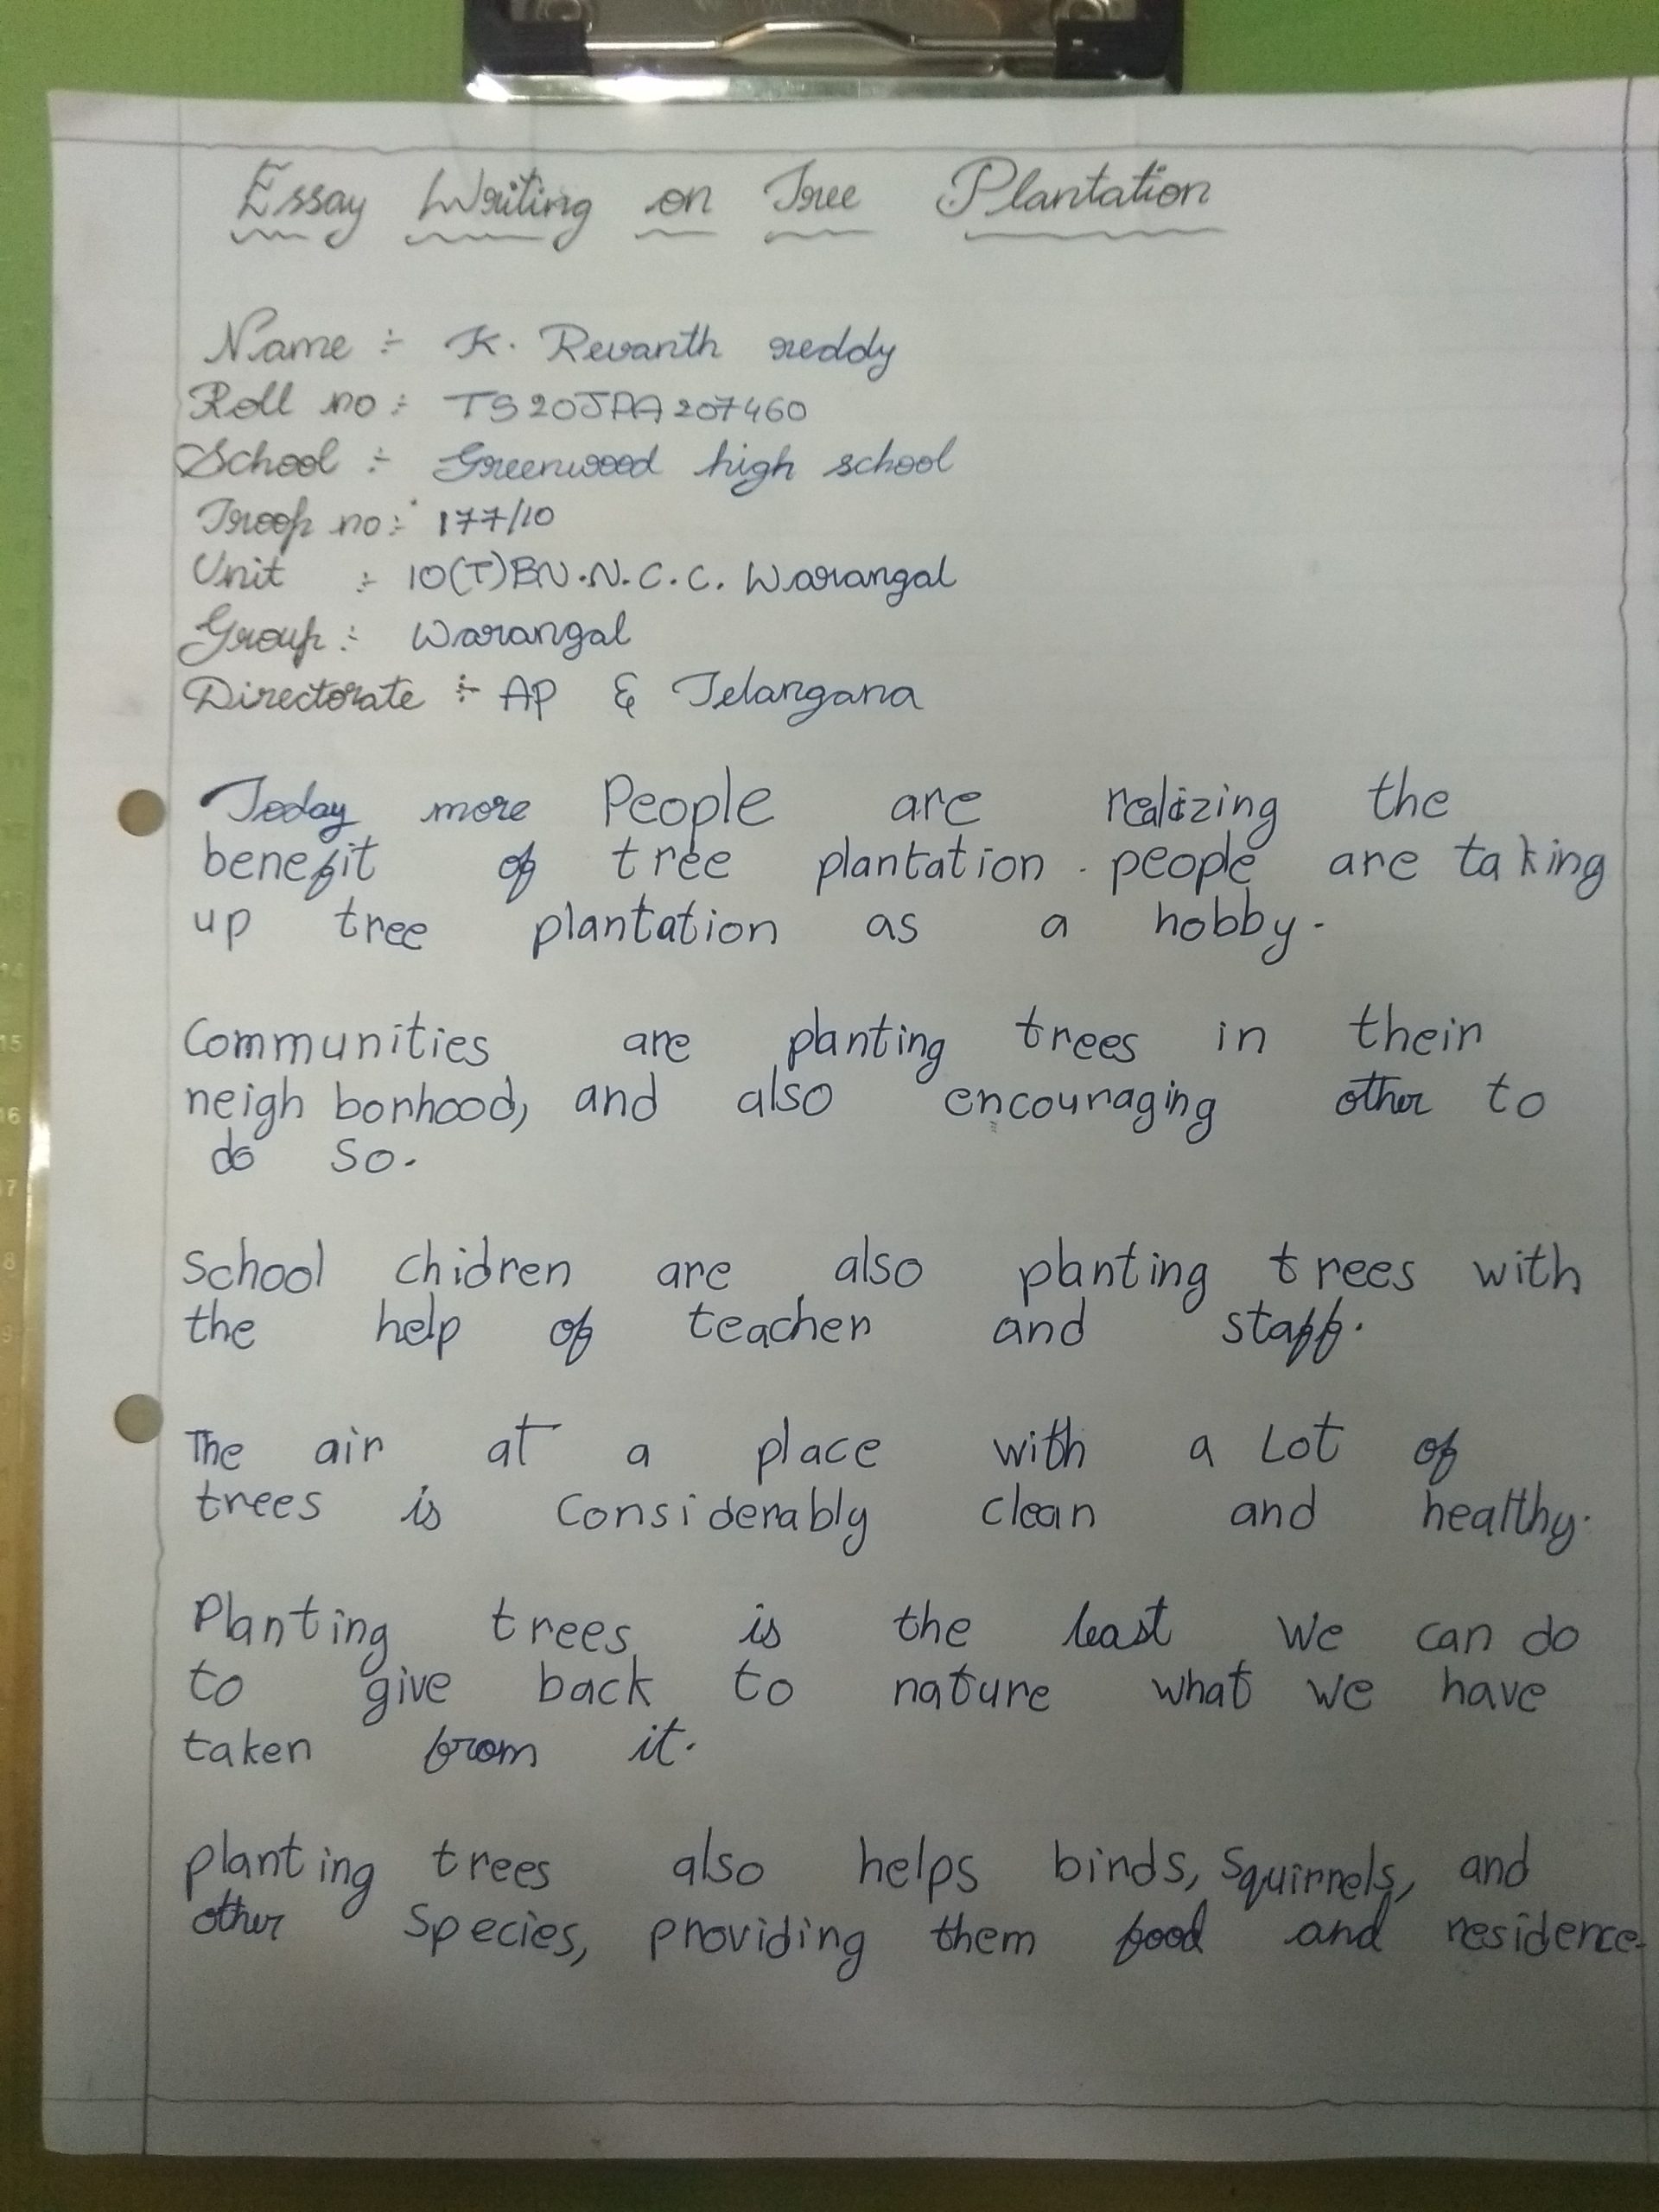 Essay Writing on Tree Plantation
Name :- K. Revanth reddy
Roll no :- TS20JDA207460
School :- Greenwood high school
Troop no :- 177/10
Unit :- 10(T)BN.N.C.C. Warangal
Group :- Warangal
Directorate :- AP & Telangana
Today more People are realizing the
benefit of tree plantation. people are taking
up tree plantation as a hobby.
Communities are planting trees in their
neigh borhood, and also encouraging other to
do so.
School chidren are also planting trees with
the help of teacher and staff.
The air at a place with a Lot of
trees is considerably clean and healthy.
Planting trees is the least we can do
to give back to nature what we have
taken from it.
planting trees also helps birds, Squirrels, and
other species, providing them food and residence.